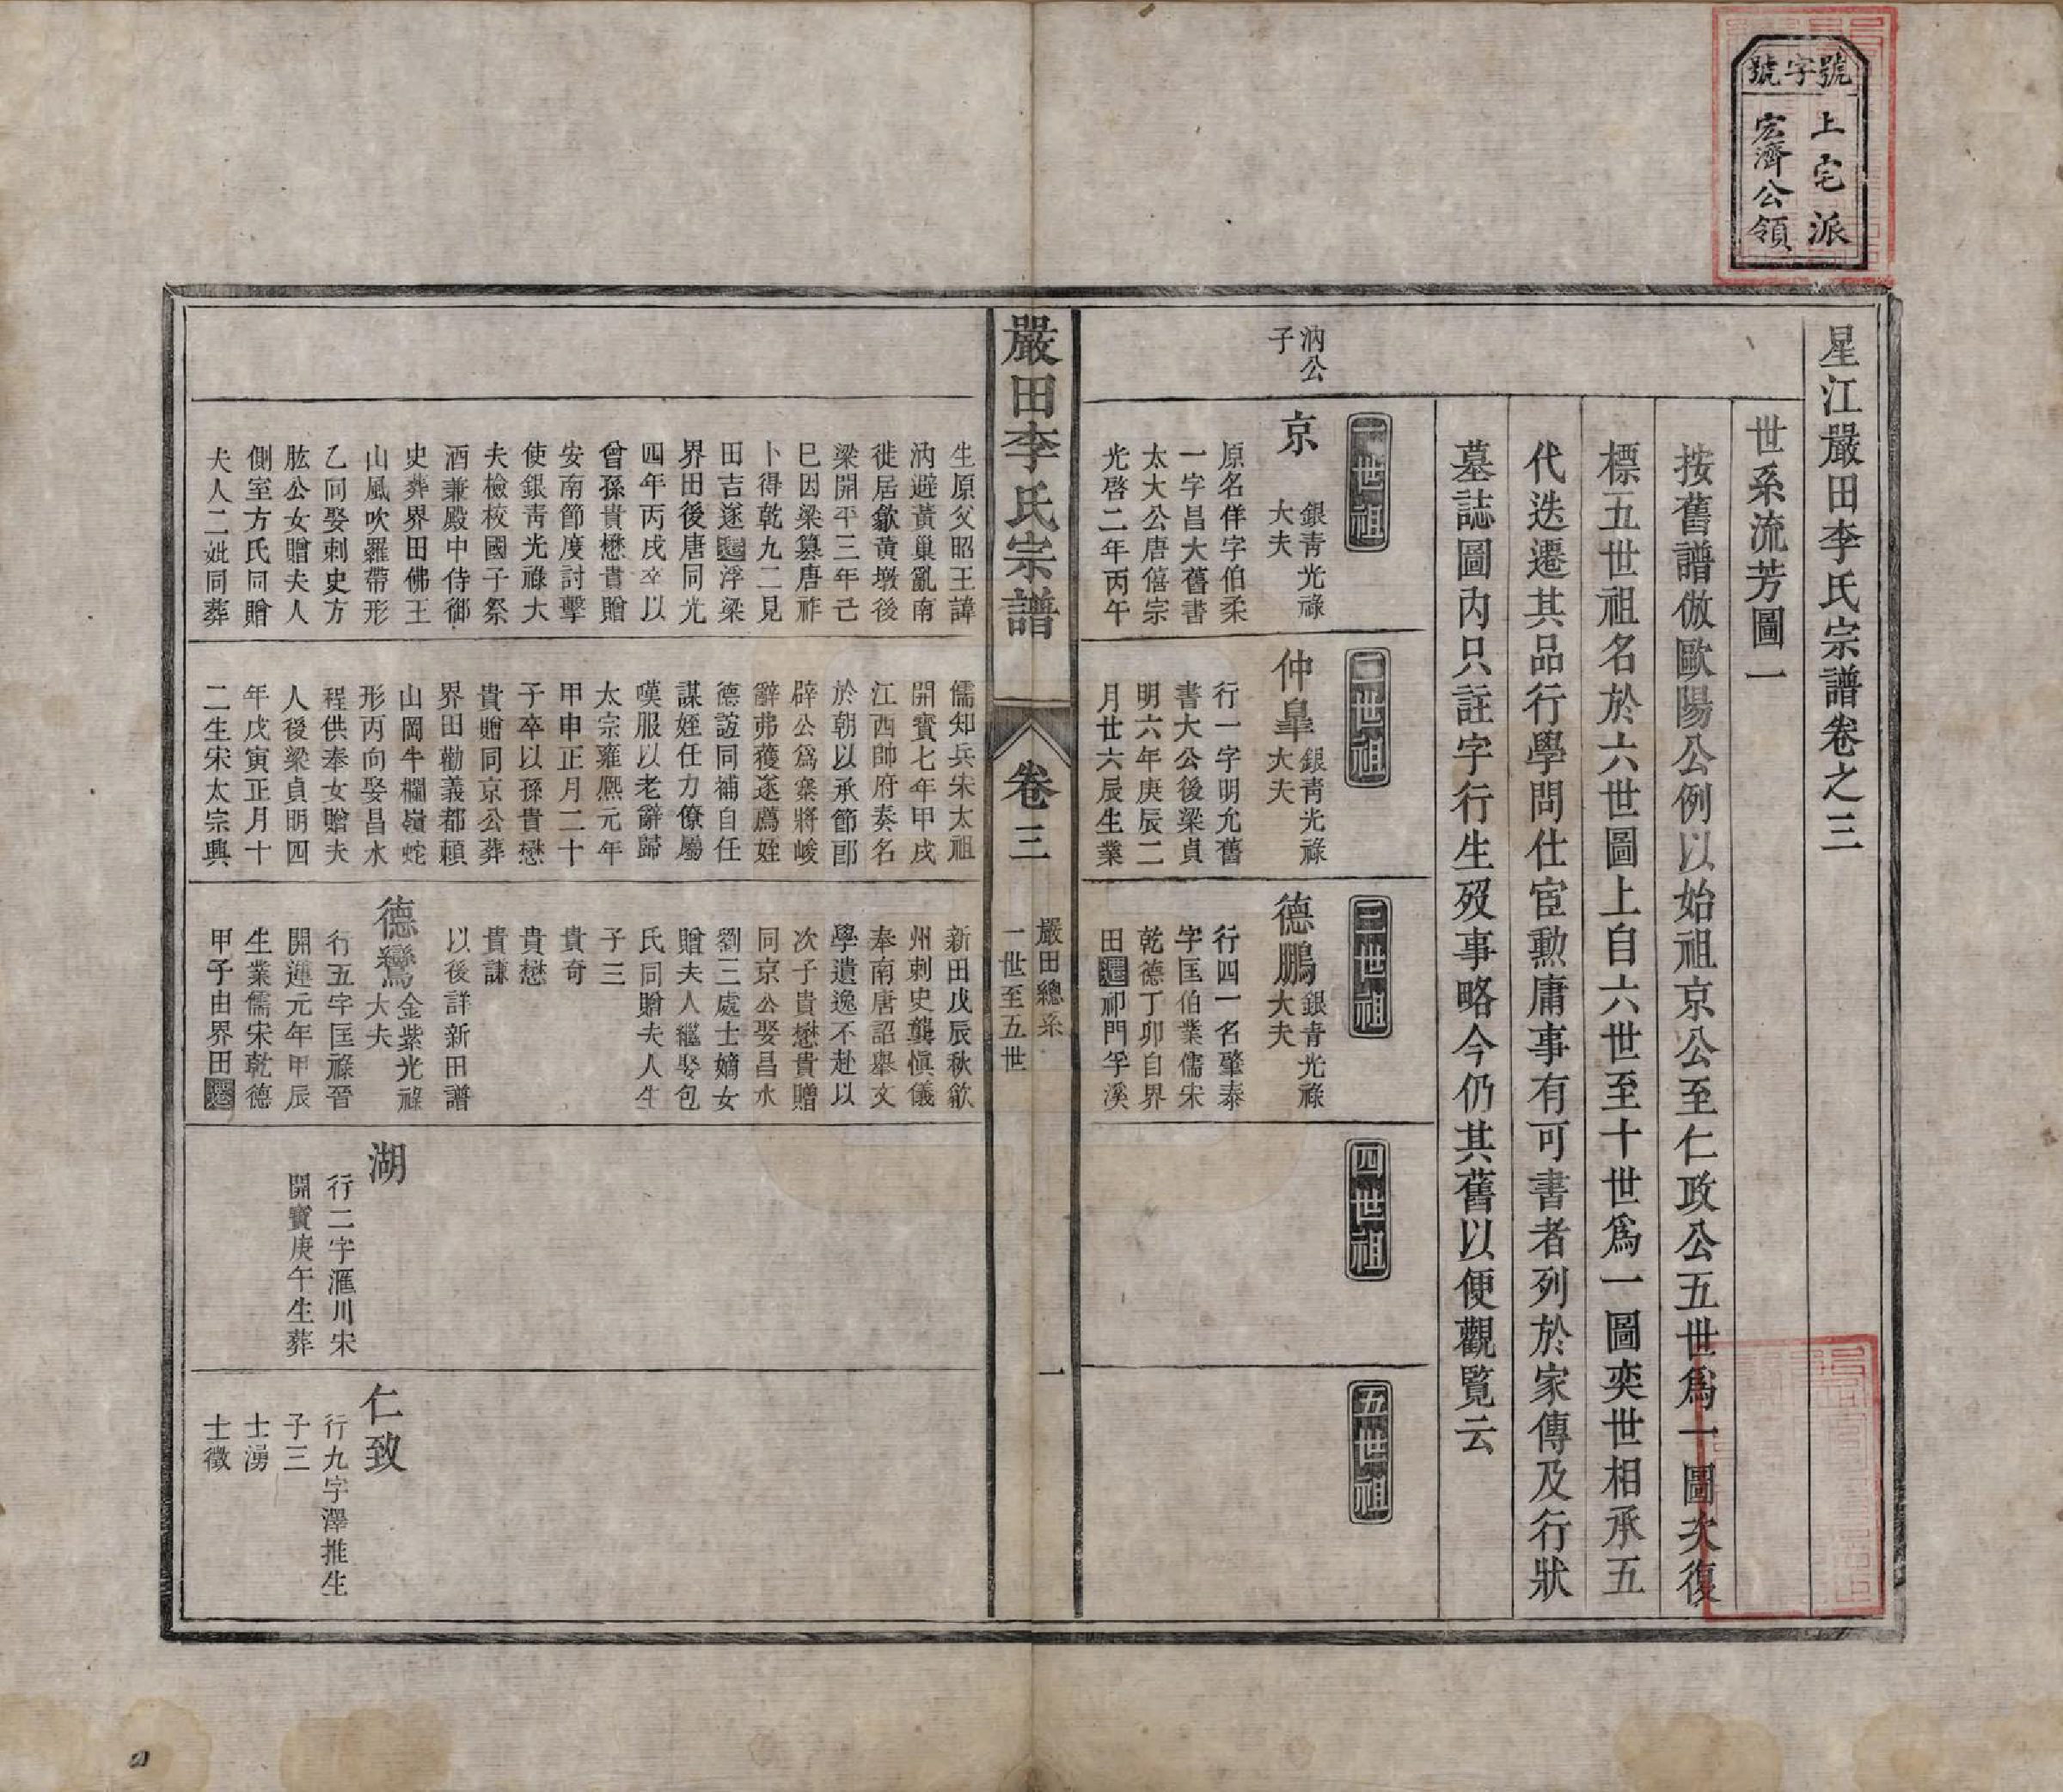 號字號
上宅派
宏濟公領
星江嚴田李氏宗譜卷之三
世系流芳圖一
按舊譜倣歐陽公例以始祖京公至仁政公五世爲一圖次復
標五世祖名於六世圖上自六世至十世爲一圖奕世相承五
代迭遷其品行學問仕宦勲庸事有可書者列於家傳及行狀
墓誌圖內只註字行生歿事略今仍其舊以便觀覧云
一世祖
汭公
子
京
銀青光祿
大夫
原名佯字伯柔
一字昌大舊書
太大公唐僖宗
光啓二年丙午
生原父昭王諱
汭避黃巢亂南
徙居歙黃墩後
梁開平三年己
巳因梁簒唐祚
卜得乾九二見
田吉遂遷浮梁
界田後唐同光
四年丙戌卒以
曾孫貴懋貴贈
安南節度討擊
使銀青光祿大
夫檢校國子祭
酒兼殿中侍御
史葬界田佛王
山風吹羅帶形
乙向娶刺史方
肱公女贈夫人
側室方氏同贈
夫人二妣同葬
二世祖
仲臯
銀青光祿
大夫
行一字明允舊
書大公後梁貞
明六年庚辰二
月廿六辰生業
儒知兵宋太祖
開寶七年甲戌
江西帥府奏名
於朝以承節郎
辟公爲寨將峻
辭弗獲遂薦姪
德誼同補自任
謀姪任力僚屬
嘆服以老辭歸
太宗雍熈元年
甲申正月二十
子卒以孫貴懋
貴贈同京公葬
界田勸義都頼
山岡牛欄嶺蛇
形丙向娶昌水
程供奉女贈夫
人後梁貞明四
年戊寅正月十
二生宋太宗興
三世祖
德鵬
銀青光祿
大夫
行四一名肇泰
字匡伯業儒宋
乾德丁卯自界
田遷祁門孚溪
新田戊辰秋歙
州刺史龔愼儀
奉南唐詔舉文
學遺逸不赴以
次子貴懋貴贈
同京公娶昌水
劉三處士嫡女
贈夫人繼娶包
氏同贈夫人生
子三
貴奇
貴懋
貴謙
以後詳新田譜
德鸞
金紫光祿
大夫
行五字匡祿晉
開運元年甲辰
生業儒宋乾德
甲子由界田遷
四世祖
湖
行二字滙川宋
開寶庚午生葬
五世祖
仁致
行九字澤推生
子三
士湧
士徵
嚴田李氏宗譜
卷三
嚴田總系
一世至五世
一